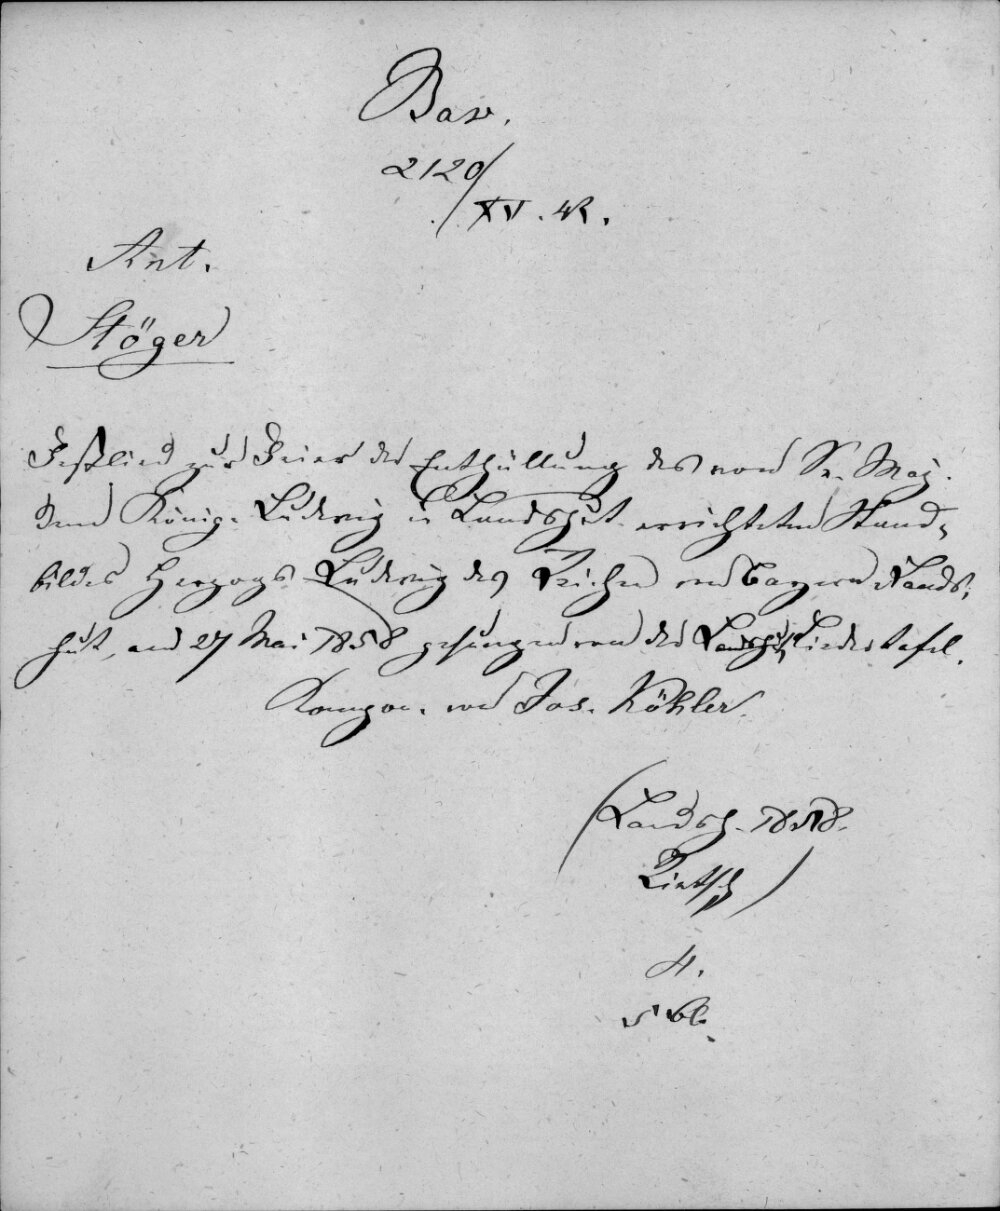 Bav.
2120/
XV. 42.
Ant.
Stöger
Festlied zur Feier der Enthüllung des von Sr. Maj.
dem König. Ludwig in Landshut errichteten Stand-
bildes Herzogs Ludwig des Reichen von Bayern Lands-
hut, am 27 Mai 1858 gesungen von der Landshut. Liedertafel.
Kompon. von Jos. Köhler.
(Landsh. 1858.
Rietsch)
4.
5 Bl.